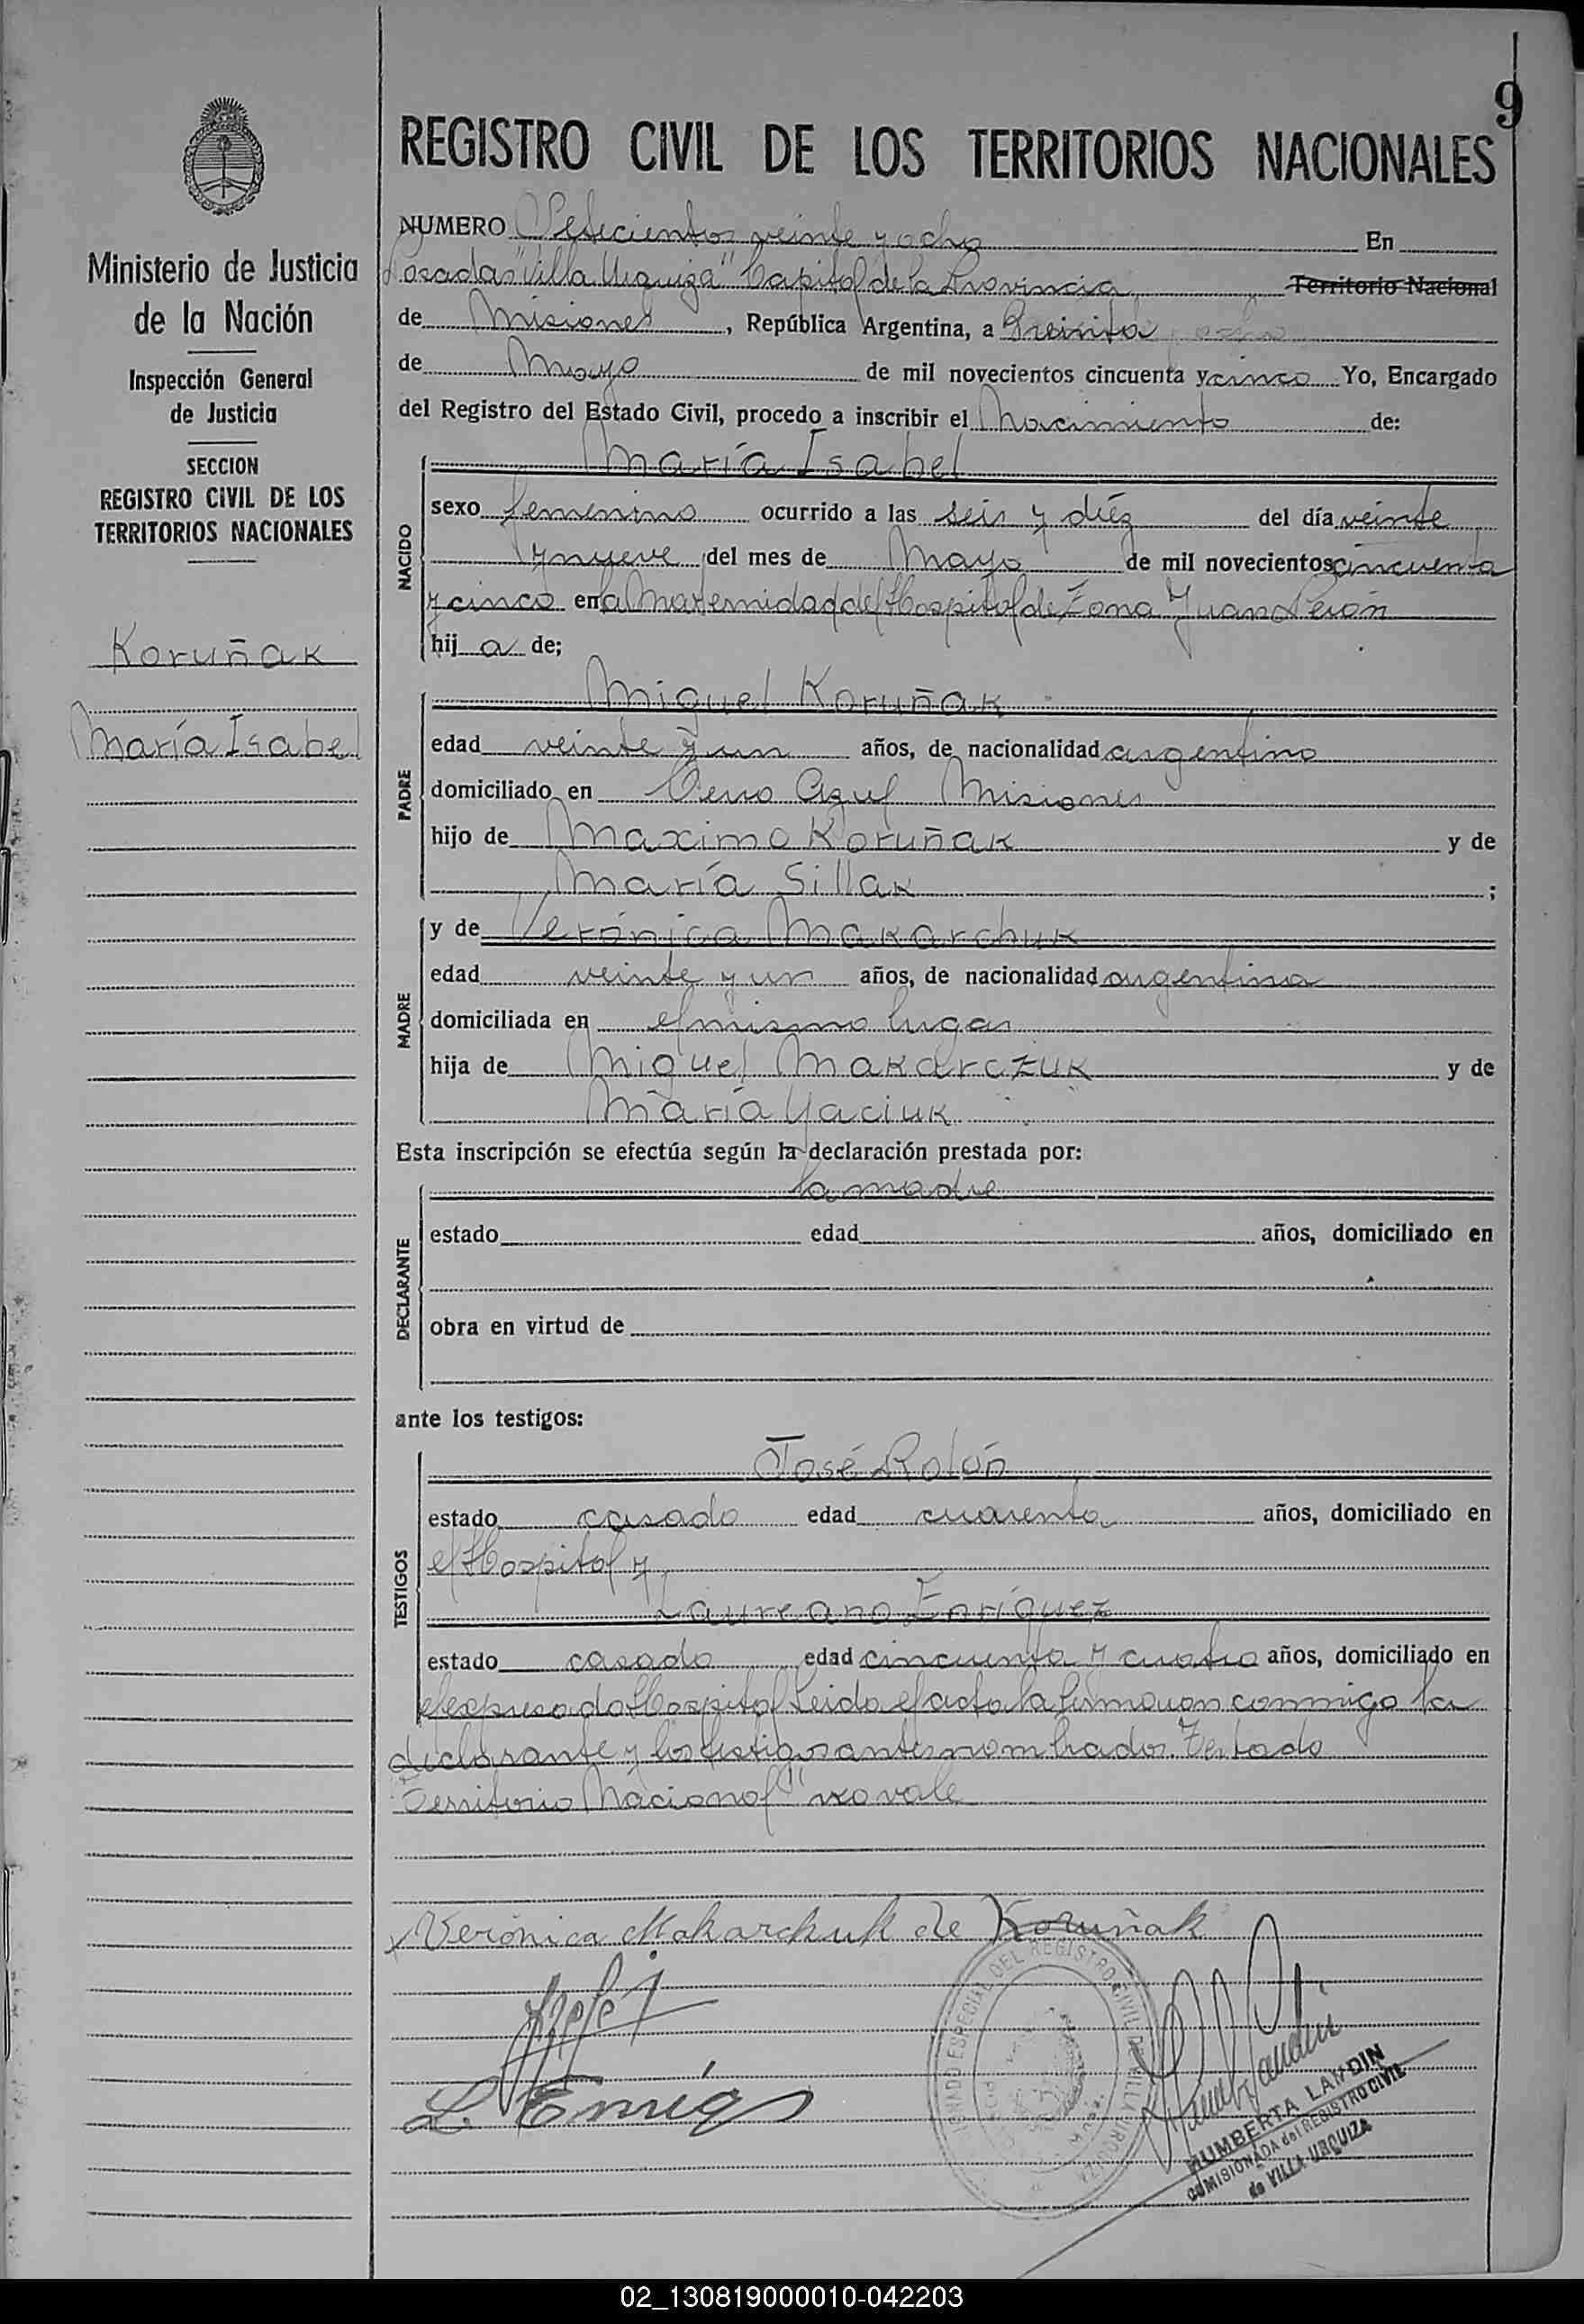 9
REGISTRO CIVIL DE LOS TERRITORIOS NACIONALES
Ministerio de Justicia
de la Nación
Inspección General
de Justicia
SECCION
REGISTRO CIVIL DE LOS
TERRITORIOS NACIONALES
Koruñak
María Isabel
NUMERO Setecientos veinte y ocho En
Posadas "Villa Urquiza" Capital de la Provincia Territorio Nacional
de Misiones, República Argentina, a Treinta
de Mayo de mil novecientos cincuenta y cinco Yo, Encargado
del Registro del Estado Civil, procedo a inscribir el Nacimiento de:
NACIDO
María Isabel
sexo femenino ocurrido a las seis y diéz del día veinte
y nueve del mes de Mayo de mil novecientos cincuenta
y cinco en la Maternidad del Hospital de Zona Juan Perón
hij a de;
PADRE
Miguel Koruñak
edad veinte y un años, de nacionalidad argentino
domiciliado en Cerro Azul Misiones
hijo de Maximo Koruñak y de
María Sillak ;
MADRE
y de Verónica Makarchuk
edad veinte y un años, de nacionalidad argentina
domiciliada en el mismo lugar
hija de Miguel Makarczuk y de
María Yaciuk
Esta inscripción se efectúa según la declaración prestada por:
DECLARANTE
la madre
estado edad años, domiciliado en
obra en virtud de
ante los testigos:
TESTIGOS
José Rolón
estado casado edad cuarenta años, domiciliado en
el Hospital y
Laureano Enríquez
estado casado edad cincuenta y cuatro años, domiciliado en
el expresado Hospital Leida el acta la firmaron conmigo la
declarante y los testigos antes nombrados. Testado
Territorio Nacional" no vale
x Verónica Makarchuk de Koruñak
DEL REGISTRO CIVIL DE VILLA URQUIZA
HUMBERTA LANDIN
COMISIONADA del REGISTRO CIVIL
de VILLA URQUIZA
02_130819000010-042203